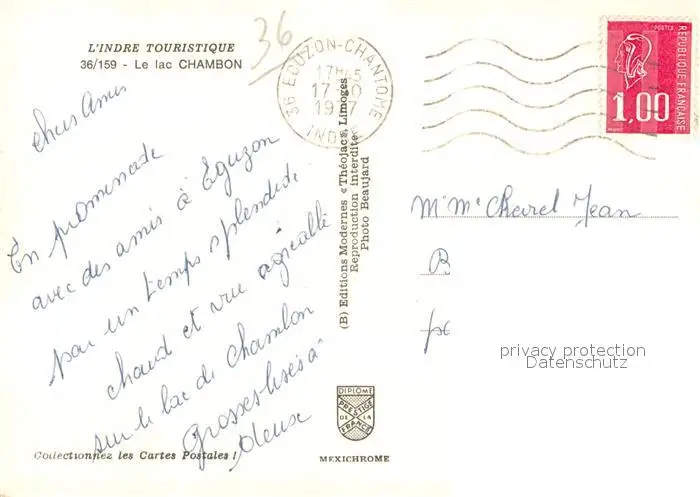 L'INDRE TOURISTIQUE
36/159 - Le lac CHAMBON
36
36 EGUZON-CHANTOME
17H45
17-10
19 7
INDRE
POSTES
REPUBLIQUE FRANCAISE
1,00
chers Amis
En promenade
avec des amis à Eguzon
par un temps splendide
chaud et vue agréable
sur le lac de Chambon
Grosses bises à
deux
(B) Editions Modernes «Théojac», Limoges
Reproduction interdite
Photo Beaujard
Mr Me Jean
B
privacy protection
Datenschutz
DIPLOME
PRESTIGE
DE LA
FRANCE
MEXICHROME
Collectionnez les Cartes Postales !